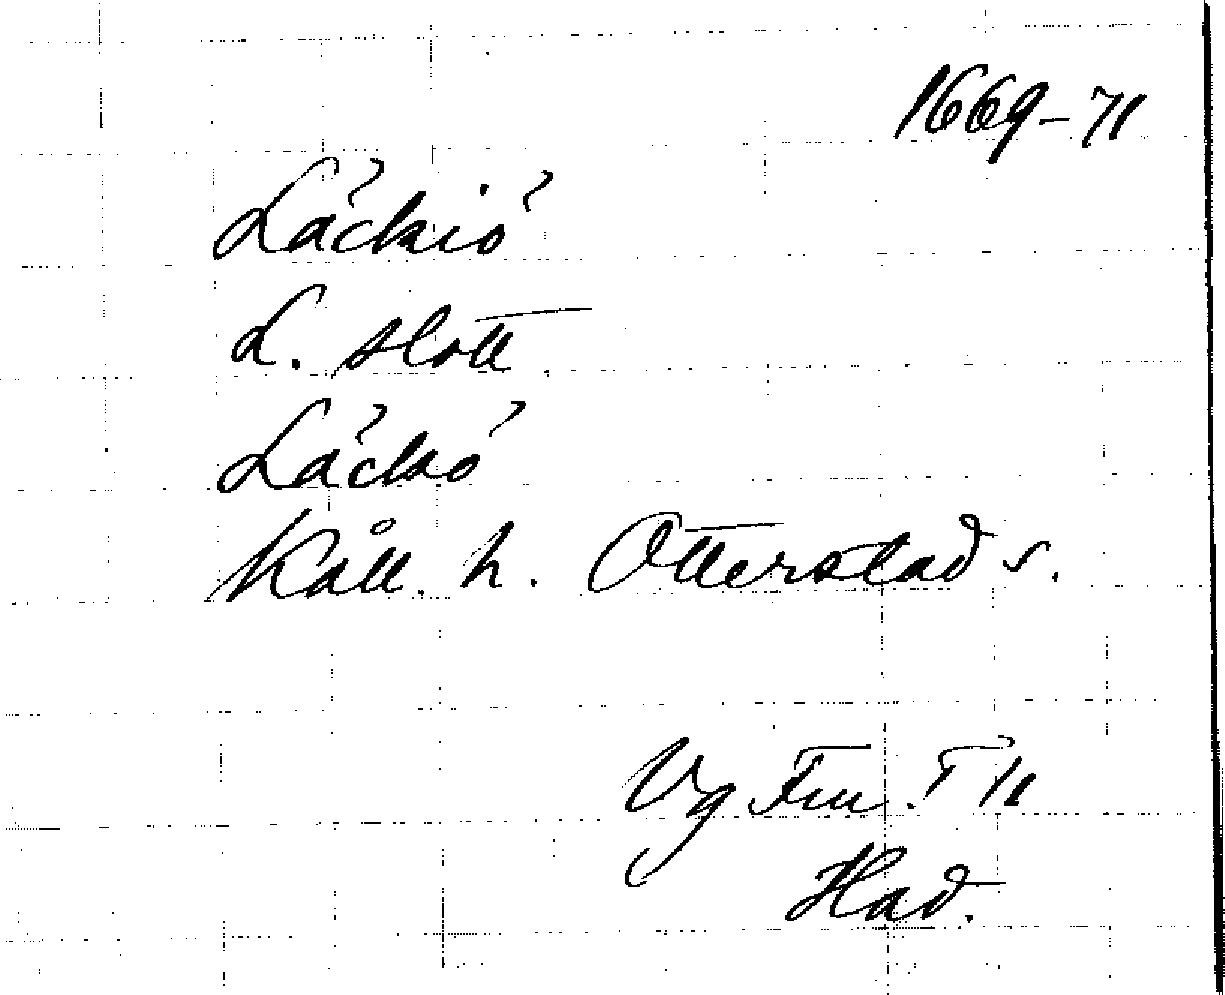 1669-71
Läckiö
L. slott
Läckö
Kåll. h. Otterstad s.
Vg Fru T 11
Had.